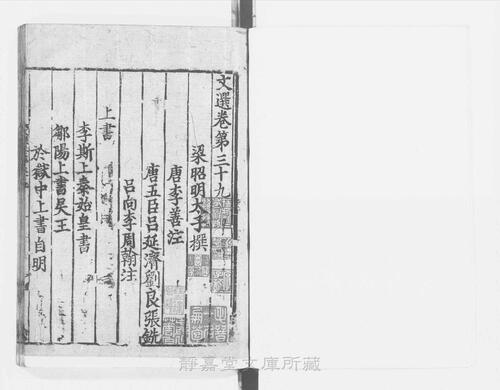 文選卷第三十九
梁昭明太子撰
唐李善注
唐五臣呂延濟劉良張銑
呂向李周翰注
上書
李斯上秦始皇書
鄒陽上書吳王
於獄中上書自明
靜嘉堂文庫所藏